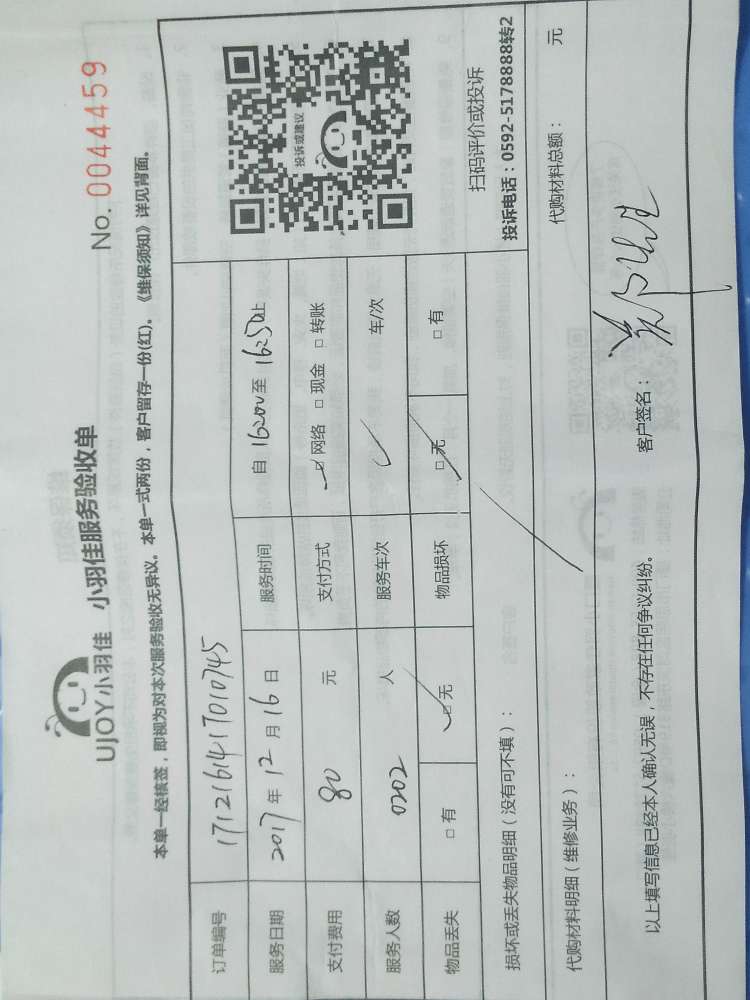 UJOY小羽佳 小羽佳服务验收单
No. 0044459
本单一经核签，即视为对本次服务验收无异议。本单一式两份，客户留存一份(红)。《维保须知》详见背面。
订单编号 171216141701 0745
服务日期 2017年12月16日 服务时间 自16:00至16:50止
支付费用 80 元 支付方式 □网络 □现金 □转账
服务人数 0202 人 服务车次 车/次
物品丢失 □有 □无 物品损坏 □无 □有
投诉或建议
扫码评价或投诉
投诉电话：0592-5178888转2
损坏或丢失物品明细（没有可不填）：
代购材料明细（维修业务）： 代购材料总额： 元
以上填写信息已经本人确认无误，不存在任何争议纠纷。 客户签名：